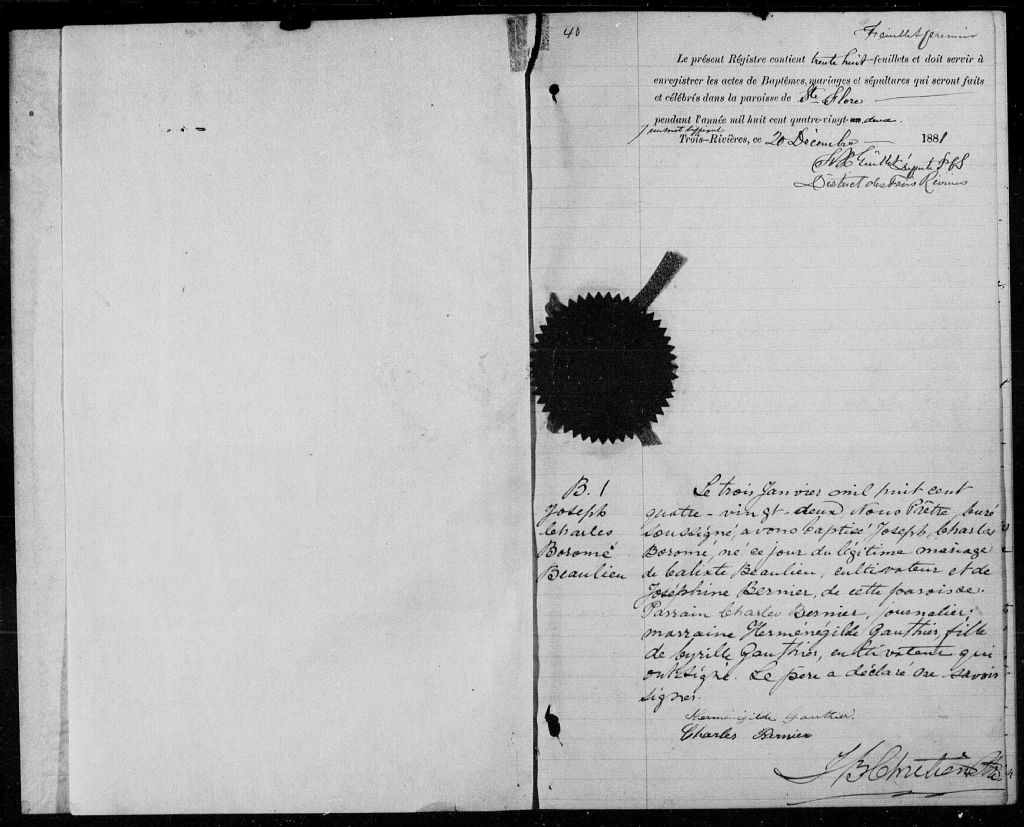 40
Feuillet premier
Le présent Régistre contient trente huit feuillets et doit servir à
enregistrer les actes de Baptêmes, mariages et sépultures qui seront faits
et célébrés dans la paroisse de Ste Flore
pendant l'année mil huit cent quatre-vingt-un deux.
Trois-Rivières, ce 20 Décembre 1881
député
District des Trois Rivières
B. 1
Joseph
Charles
Boromé
Beaulieu
Le trois Janvier mil huit cent
quatre-vingt-deux Nous Prêtre, Curé
soussigné, avons baptisé Joseph, Charles
Borome, né ce jour du légitime mariage
de Calixte Beaulieu, cultivateur et de
Joséphine Bernier, de cette paroisse.
Parrain Charles Bernier, journalier;
marraine Herménégilde Gauthier, fille
de Cyrille Gauthier, cultivateur qui
ont signé. Le père a déclaré ne savoir
signer.
Herménégilde Gauthier.
Charles Bernier
J B Chrétien Ptre